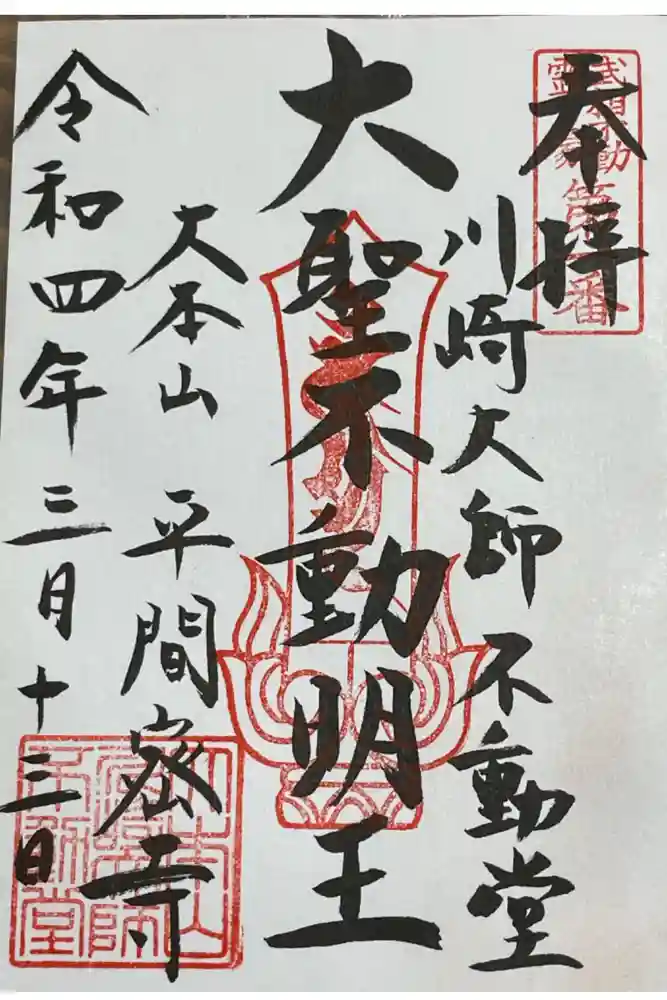 奉拝
川崎大師 不動堂
大聖不動明王
大本山 平間密寺
令和四年三月十三日